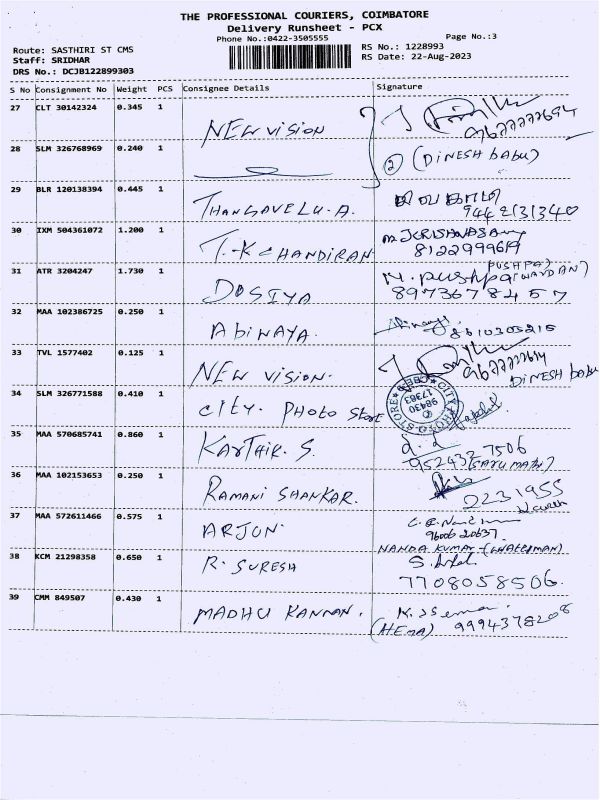 THE PROFESSIONAL COURIERS, COIMBATORE
Delivery Runsheet - PCX
Phone No.:0422-3505555
Page No.:3
Route: SASTHIRI ST CMS
RS No.: 1228993
Staff: SRIDHAR
RS Date: 22-Aug-2023
DRS No.: DCJB122899303
S No Consignment No Weight PCS Consignee Details Signature
27 CLT 30142324 0.345 1 NEW VISION
28 SLM 326768969 0.240 1 (2) (DINESH babu)
29 BLR 120138394 0.445 1 THANGAVELU. A.
9442131340
30 IXM 504361072 1.200 1 T.-K CHANDIRAN
31 ATR 3204247 1.730 1 DOSIYA M. pushpa (PUSHPA) (WARDAN)
8973678457
32 MAA 102386725 0.250 1 Abinaya. 8610305215
33 TVL 1577402 0.125 1 NEW VISION.
DINESH babu
34 SLM 326771588 0.410 1 CITY. PHOTO Store CITY PHOTO STORE
98430
17383
35 MAA 570685741 0.860 1 KARTHIK. S.
(SARUMATHI)
36 MAA 102153653 0.250 1 RAMANI SHANKAR. 2231955
37 MAA 572611466 0.575 1 ARJUN.
9600620637
NANDA KUMAR - (WATCHMAN)
38 KCM 21298358 0.650 1 R. SURESH
7708058506.
39 CMM 849507 0.430 1 MADHU KANNAN.
(HEMA) 9994378208